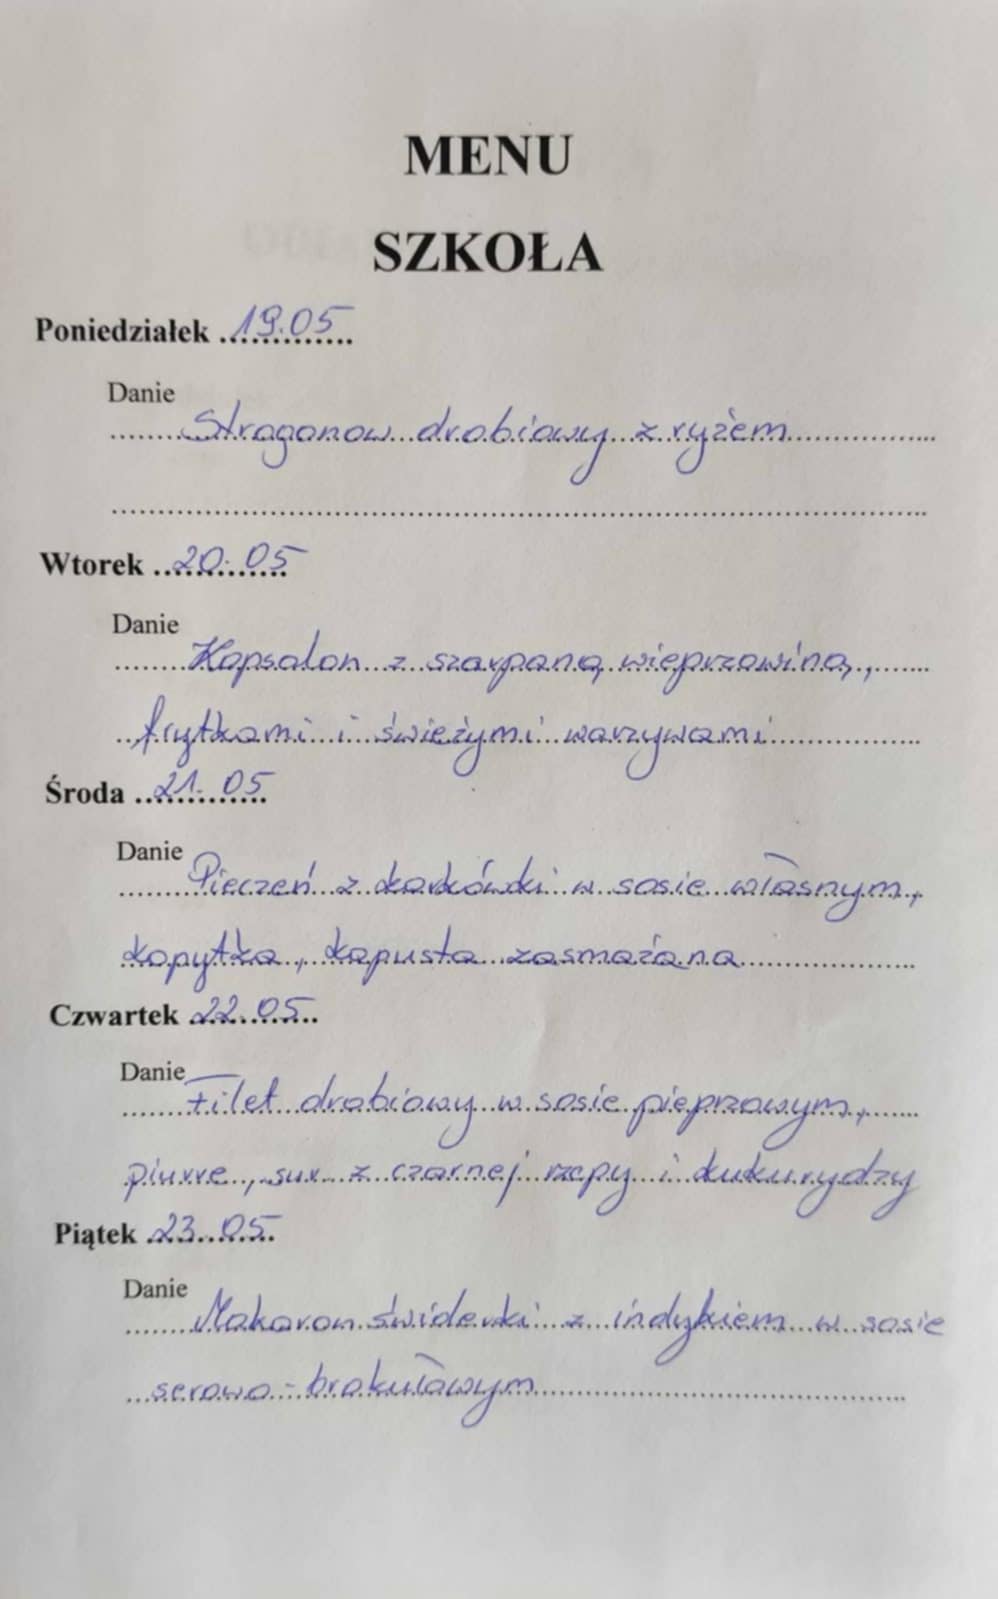 MENU
SZKOŁA
Poniedziałek 19.05
Danie
Strogonow drobiowy z ryżem
Wtorek 20.05
Danie
Kapsalon z szarpaną wieprzowiną,
frytkami i świeżymi warzywami
Środa 21.05
Danie
Pieczeń z karkówki w sosie własnym,
kopytka, kapusta zasmażana
Czwartek 22.05
Danie
Filet drobiowy w sosie pieprzowym,
piurre, sur. z czarnej rzepy i kukurydzy
Piątek 23.05
Danie
Makaron świderki z indykiem w sosie
serowo-brokułowym